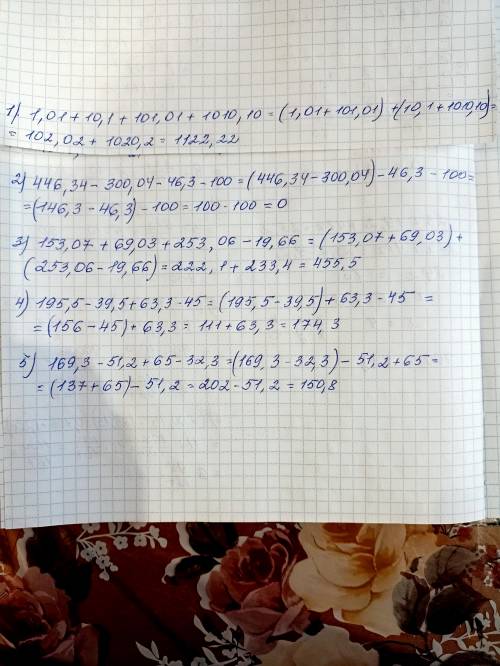 1) 1,01 + 10,1 + 101,01 + 1010,10 = (1,01 + 101,01) + (10,1 + 1010,10) =
= 102,02 + 1020,2 = 1122,22
2) 446,34 - 300,04 - 46,3 - 100 = (446,34 - 300,04) - 46,3 - 100 =
= (146,3 - 46,3) - 100 = 100 - 100 = 0
3) 153,07 + 69,03 + 253,06 - 19,66 = (153,07 + 69,03) +
(253,06 - 19,66) = 222,1 + 233,4 = 455,5
4) 195,5 - 39,5 + 63,3 - 45 = (195,5 - 39,5) + 63,3 - 45 =
= (156 - 45) + 63,3 = 111 + 63,3 = 174,3
5) 169,3 - 51,2 + 65 - 32,3 = (169,3 - 32,3) - 51,2 + 65 =
= (137 + 65) - 51,2 = 202 - 51,2 = 150,8